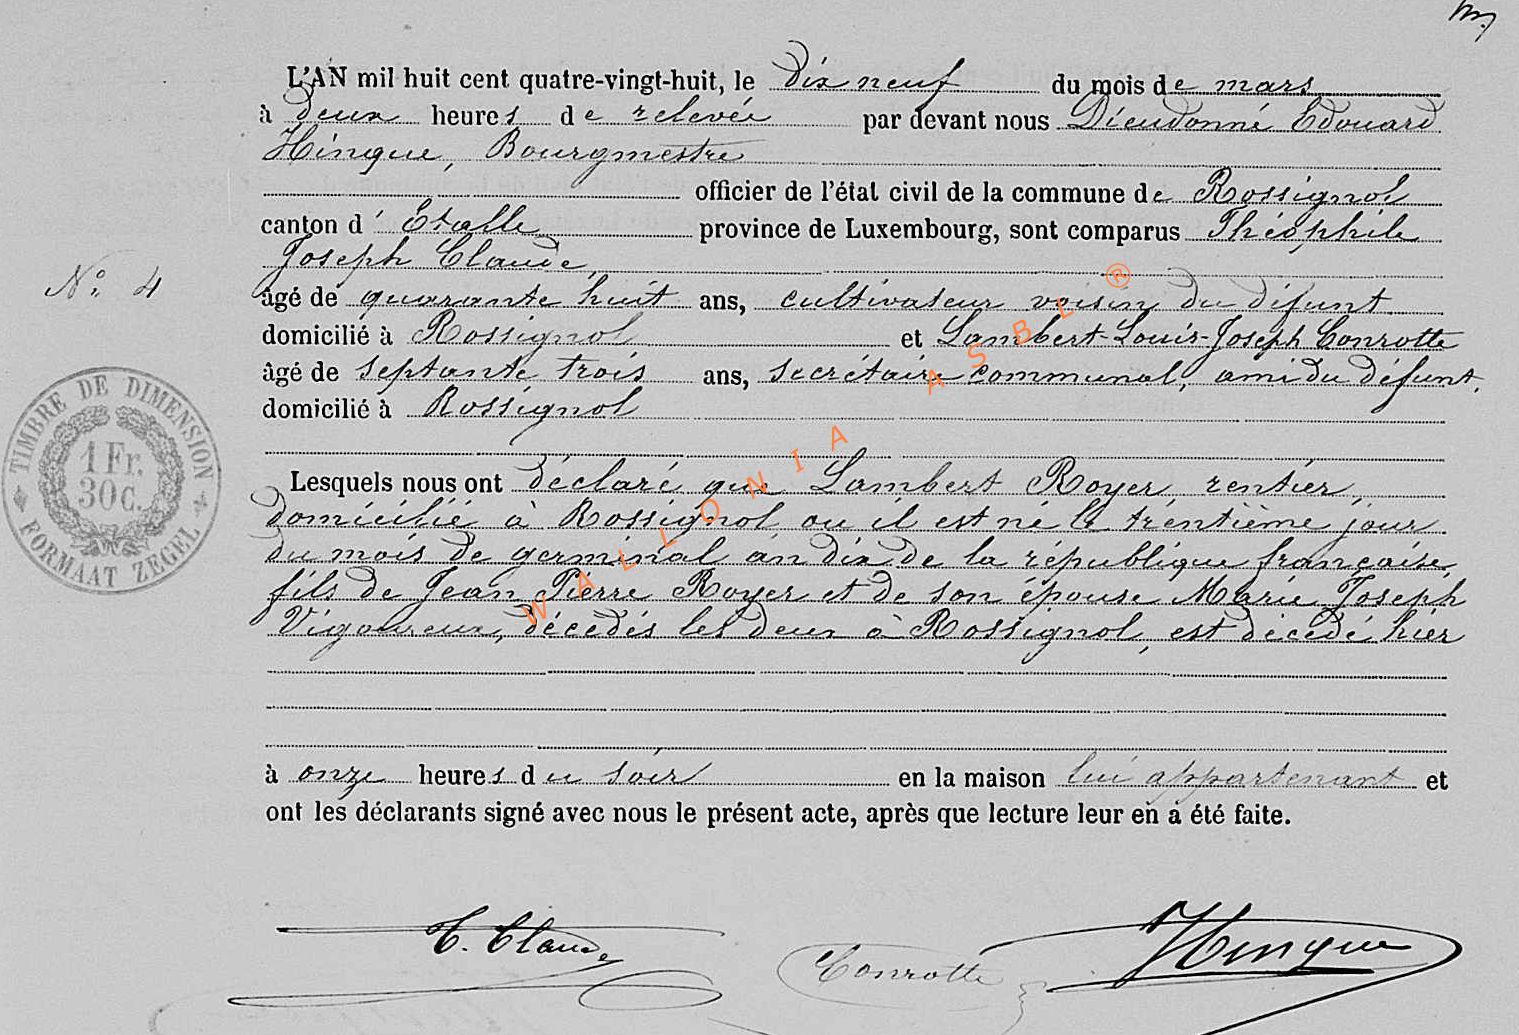 L'AN mil huit cent quatre-vingt-huit, le dix neuf du mois de mars
à deux heures de relevée par devant nous Dieudonné Edouard
Hinque, Bourgmestre
officier de l'état civil de la commune de Rossignol
canton d'Etalle province de Luxembourg, sont comparus Théophile
Joseph Claude,
N° 4
âgé de quarante huit ans, cultivateur voisin du défunt
domicilié à Rossignol et Lambert-Louis-Joseph Conrotte
âgé de septante trois ans, secrétaire communal, ami du défunt,
domicilié à Rossignol
TIMBRE DE DIMENSION
1 Fr.
30 C.
FORMAAT ZEGEL
Lesquels nous ont déclaré que Lambert Royer, rentier,
domicilié à Rossignol ou il est né le trentième jour
du mois de germinal an dix de la république française,
fils de Jean Pierre Royer et de son épouse Marie Joseph
Vigoureux, décédés les deux à Rossignol, est décédé hier
à onze heures du soir en la maison lui appartenant et
ont les déclarants signé avec nous le présent acte, après que lecture leur en a été faite.
T. Claude
Conrotte
Hinque
WALLONIA ASBL ®